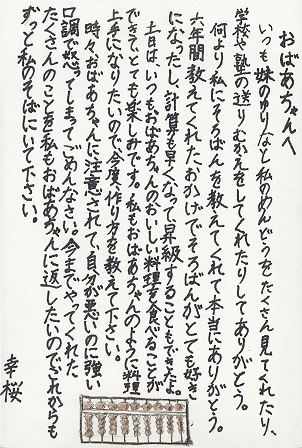 おばあちゃんへ
いつも妹のゆりなと私のめんどうをたくさん見てくれたり、
学校や塾の送りむかえをしてくれたりしてありがとう。
何より私にそろばんを教えてくれて本当にありがとう。
六年間教えてくれたおかげでそろばんがとても好き
になったし、計算も早くなって、昇級することもできたよ。
土日は、いつもおばあちゃんのおいしい料理を食べることが
できて、とても楽しみです。私もおばあちゃんのように料理
上手になりたいので、今度、作り方を教えて下さい。
時々おばあちゃんに注意されて、自分が悪いのに強い
口調で怒ってしまってごめんなさい。今までやってくれた
たくさんのことを私もおばあちゃんに返したいのでこれからも
ずっと私のそばにいて下さい。
幸桜